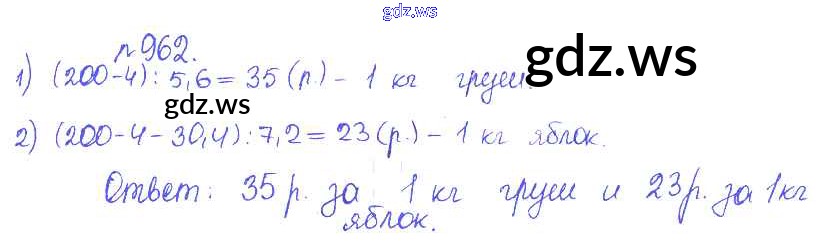 gdz.ws
№962.
1) (200-4) : 5,6 = 35 (р.) - 1 кг груш.
gdz.ws
gdz.ws
2) (200-4-30,4) : 7,2 = 23 (р.) - 1 кг яблок.
Ответ: 35 р. за 1 кг груш и 23 р. за 1 кг
яблок.